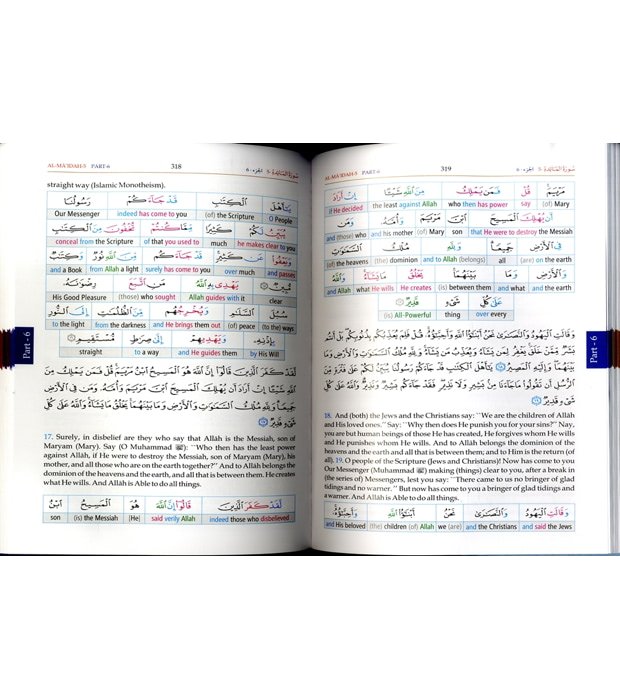 AL-MA'IDAH-5 PART-6 318 الجزء - ٦ سورة المائدة -٥
straight way (Islamic Monotheism).
يَٰٓأَهْلَ ٱلْكِتَٰبِ قَدْ جَآءَكُمْ رَسُولُنَا
Our Messenger indeed has come to you (of) the Scripture O People
يُبَيِّنُ لَكُمْ كَثِيرًا مِّمَّا كُنتُمْ تُخْفُونَ مِنَ ٱلْكِتَٰبِ
conceal from the Scripture of that you used to much he makes clear to you
وَيَعْفُوا۟ عَن كَثِيرٍ قَدْ جَآءَكُم مِّنَ ٱللَّهِ نُورٌ وَكِتَٰبٌ
and a Book from Allah a light surely has come to you over much and passes
مُّبِينٌ يَهْدِى بِهِ ٱللَّهُ مَنِ ٱتَّبَعَ رِضْوَٰنَهُۥ
His Good Pleasure (those) who sought Allah guides with it clear
سُبُلَ ٱلسَّلَٰمِ وَيُخْرِجُهُم مِّنَ ٱلظُّلُمَٰتِ إِلَى ٱلنُّورِ
to the light from the darkness and He brings them out (of) peace (to the) ways
بِإِذْنِهِۦ وَيَهْدِيهِمْ إِلَىٰ صِرَٰطٍ مُّسْتَقِيمٍ
straight to a way and He guides them by His Will
لَقَدْ كَفَرَ ٱلَّذِينَ قَالُوٓا۟ إِنَّ ٱللَّهَ هُوَ ٱلْمَسِيحُ ٱبْنُ مَرْيَمَ قُلْ فَمَن يَمْلِكُ مِنَ
ٱللَّهِ شَيْـًٔا إِنْ أَرَادَ أَن يُهْلِكَ ٱلْمَسِيحَ ٱبْنَ مَرْيَمَ وَأُمَّهُۥ وَمَن فِى ٱلْأَرْضِ
جَمِيعًا وَلِلَّهِ مُلْكُ ٱلسَّمَٰوَٰتِ وَٱلْأَرْضِ وَمَا بَيْنَهُمَا يَخْلُقُ مَا يَشَآءُ وَٱللَّهُ عَلَىٰ كُلِّ
شَىْءٍ قَدِيرٌ
17. Surely, in disbelief are they who say that Allah is the Messiah, son of
Maryam (Mary). Say (O Muhammad ﷺ): "Who then has the least power
against Allah, if He were to destroy the Messiah, son of Maryam (Mary), his
mother, and all those who are on the earth together?" And to Allah belongs the
dominion of the heavens and the earth, and all that is between them. He creates
what He wills. And Allah is Able to do all things.
لَقَدْ كَفَرَ ٱلَّذِينَ قَالُوٓا۟ إِنَّ ٱللَّهَ هُوَ ٱلْمَسِيحُ ٱبْنُ
son (is) the Messiah [He] said verily Allah indeed those who disbelieved
Part - 6
AL-MA'IDAH-5 PART-6 319 الجزء - ٦ سورة المائدة -٥
مَرْيَمَ قُلْ فَمَن يَمْلِكُ مِنَ ٱللَّهِ شَيْـًٔا إِنْ أَرَادَ
if He decided the least against Allah who then has power say (of) Mary
أَن يُهْلِكَ ٱلْمَسِيحَ ٱبْنَ مَرْيَمَ وَأُمَّهُۥ وَمَن
and (those) who and his mother (of) Mary son that He were to destroy the Messiah
فِى ٱلْأَرْضِ جَمِيعًا وَلِلَّهِ مُلْكُ ٱلسَّمَٰوَٰتِ
(of) the heavens (the) dominion and to Allah (belongs) all (are) on the earth
وَٱلْأَرْضِ وَمَا بَيْنَهُمَا يَخْلُقُ مَا يَشَآءُ وَٱللَّهُ
and Allah what He wills He creates (is) between them and what and the earth
عَلَىٰ كُلِّ شَىْءٍ قَدِيرٌ
(is) All-Powerful thing over every
وَقَالَتِ ٱلْيَهُودُ وَٱلنَّصَٰرَىٰ نَحْنُ أَبْنَٰٓؤُا۟ ٱللَّهِ وَأَحِبَّٰٓؤُهُۥ قُلْ فَلِمَ يُعَذِّبُكُم بِذُنُوبِكُم بَلْ أَنتُم
بَشَرٌ مِّمَّنْ خَلَقَ يَغْفِرُ لِمَن يَشَآءُ وَيُعَذِّبُ مَن يَشَآءُ وَلِلَّهِ مُلْكُ ٱلسَّمَٰوَٰتِ وَٱلْأَرْضِ وَمَا
بَيْنَهُمَا وَإِلَيْهِ ٱلْمَصِيرُ ١٨ يَٰٓأَهْلَ ٱلْكِتَٰبِ قَدْ جَآءَكُمْ رَسُولُنَا يُبَيِّنُ لَكُمْ عَلَىٰ فَتْرَةٍ مِّنَ
ٱلرُّسُلِ أَن تَقُولُوا۟ مَا جَآءَنَا مِنۢ بَشِيرٍ وَلَا نَذِيرٍ فَقَدْ جَآءَكُم بَشِيرٌ وَنَذِيرٌ وَٱللَّهُ عَلَىٰ كُلِّ
شَىْءٍ قَدِيرٌ ١٩
18. And (both) the Jews and the Christians say: "We are the children of Allah
and His loved ones." Say: "Why then does He punish you for your sins?" Nay,
you are but human beings of those He has created, He forgives whom He wills
and He punishes whom He wills. And to Allah belongs the dominion of the
heavens and the earth and all that is between them; and to Him is the return (of
all). 19. O people of the Scripture (Jews and Christians)! Now has come to you
Our Messenger (Muhammad ﷺ) making (things) clear to you, after a break in
(the series of) Messengers, lest you say: "There came to us no bringer of glad
tidings and no warner." But now has come to you a bringer of glad tidings and
a warner. And Allah is Able to do all things.
وَقَالَتِ ٱلْيَهُودُ وَٱلنَّصَٰرَىٰ نَحْنُ أَبْنَٰٓؤُا۟ ٱللَّهِ وَأَحِبَّٰٓؤُهُۥ
and His beloved (the) children (of) Allah we (are) and the Christians and said the Jews
Part - 6